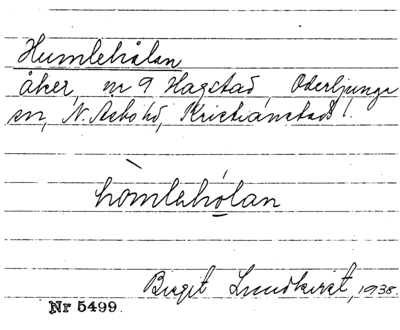 Humlehålan
åker, nr 9 Hagstad, Oderljunga
sn, N. Åsbo hd, Kristianstads l.
hòmlehólan
Birgit Lundkvist, 1938.
Nr 5499.